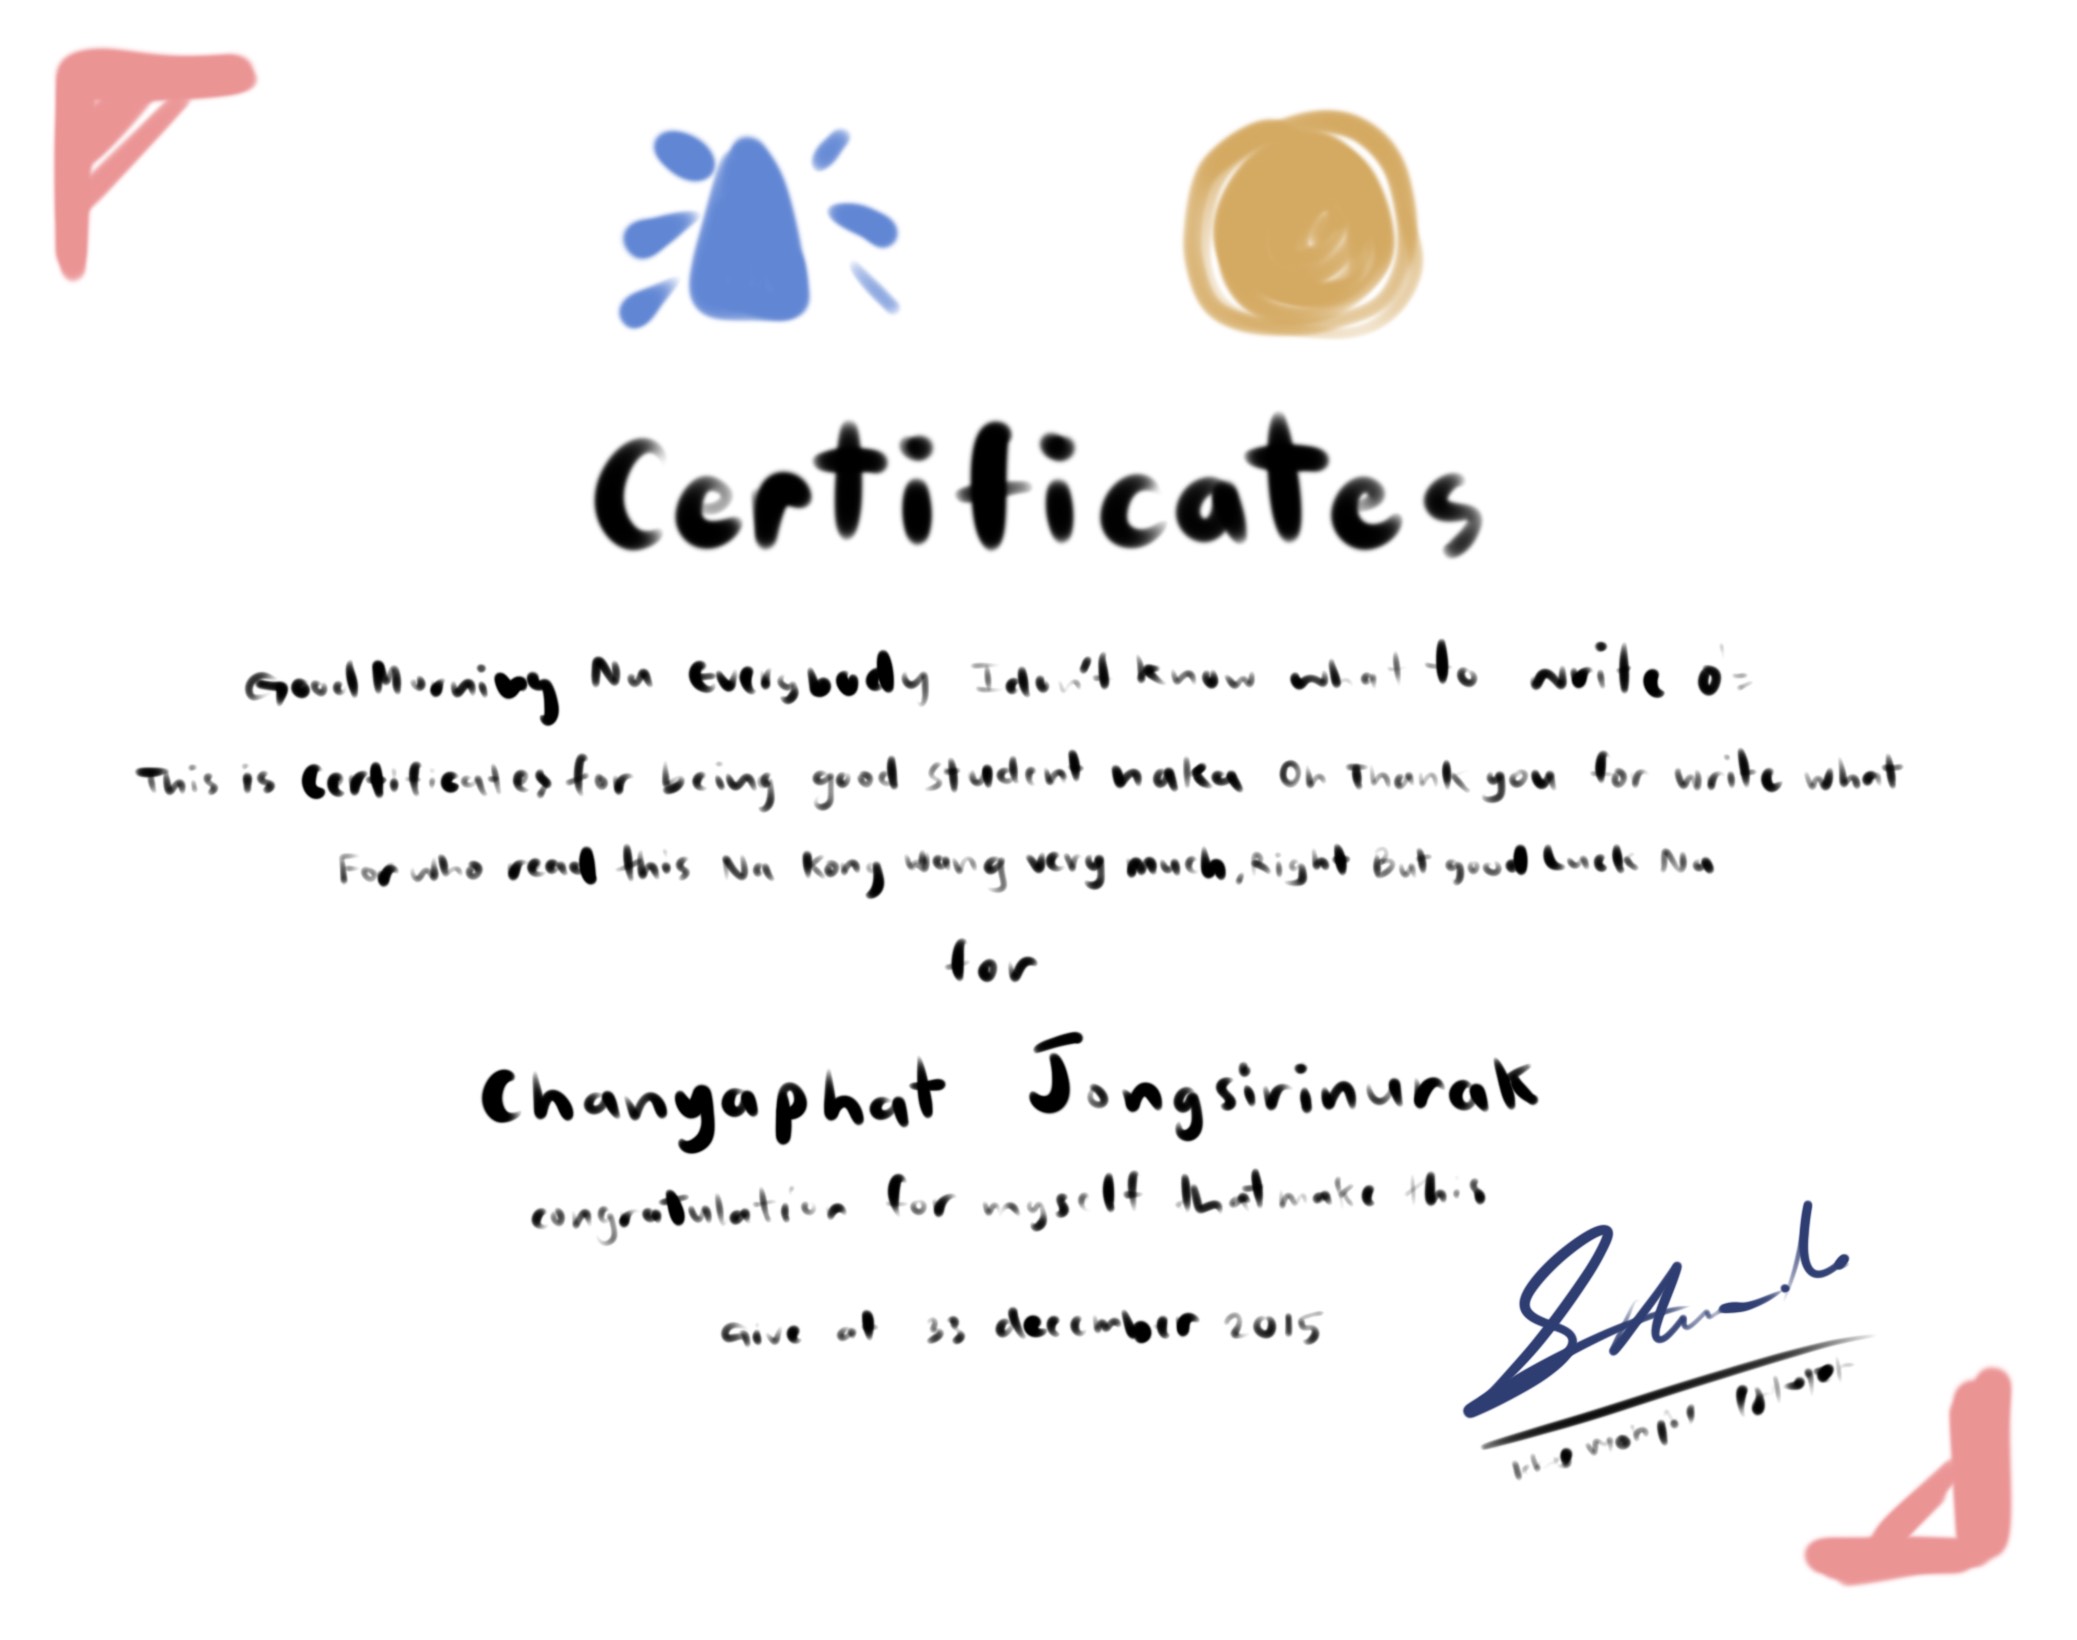 Certificates
Good Morning Na Everybody I don't know what to write o:
This is Certificates for being good student naka Oh Thank you for write what
For who read this Na Kong wang very much, Right But good Luck Na
for
Chanyaphat Jongsirinurak
congratulation for myself that make this
Give at 33 december 2015